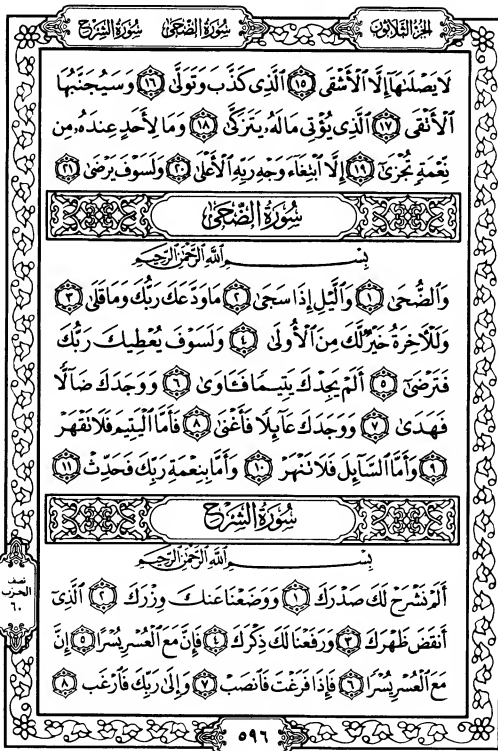 الجزء الثلاثون سورة الضحى سورة الشرح
لَا يَصْلَىٰهَآ إِلَّا ٱلْأَشْقَى ١٥ ٱلَّذِى كَذَّبَ وَتَوَلَّىٰ ١٦ وَسَيُجَنَّبُهَا
ٱلْأَتْقَى ١٧ ٱلَّذِى يُؤْتِى مَالَهُۥ يَتَزَكَّىٰ ١٨ وَمَا لِأَحَدٍ عِندَهُۥ مِن
نِّعْمَةٍ تُجْزَىٰٓ ١٩ إِلَّا ٱبْتِغَآءَ وَجْهِ رَبِّهِ ٱلْأَعْلَىٰ ٢٠ وَلَسَوْفَ يَرْضَىٰ ٢١
سُورَةُ الضُّحَىٰ
بِسْمِ ٱللَّهِ ٱلرَّحْمَٰنِ ٱلرَّحِيمِ
وَٱلضُّحَىٰ ١ وَٱلَّيْلِ إِذَا سَجَىٰ ٢ مَا وَدَّعَكَ رَبُّكَ وَمَا قَلَىٰ ٣
وَلَلْءَاخِرَةُ خَيْرٌ لَّكَ مِنَ ٱلْأُولَىٰ ٤ وَلَسَوْفَ يُعْطِيكَ رَبُّكَ
فَتَرْضَىٰٓ ٥ أَلَمْ يَجِدْكَ يَتِيمًا فَـَٔاوَىٰ ٦ وَوَجَدَكَ ضَآلًّا
فَهَدَىٰ ٧ وَوَجَدَكَ عَآئِلًا فَأَغْنَىٰ ٨ فَأَمَّا ٱلْيَتِيمَ فَلَا تَقْهَرْ
٩ وَأَمَّا ٱلسَّآئِلَ فَلَا تَنْهَرْ ١٠ وَأَمَّا بِنِعْمَةِ رَبِّكَ فَحَدِّثْ ١١
سُورَةُ الشَّرْحِ
بِسْمِ ٱللَّهِ ٱلرَّحْمَٰنِ ٱلرَّحِيمِ
أَلَمْ نَشْرَحْ لَكَ صَدْرَكَ ١ وَوَضَعْنَا عَنكَ وِزْرَكَ ٢ ٱلَّذِىٓ
أَنقَضَ ظَهْرَكَ ٣ وَرَفَعْنَا لَكَ ذِكْرَكَ ٤ فَإِنَّ مَعَ ٱلْعُسْرِ يُسْرًا ٥ إِنَّ
مَعَ ٱلْعُسْرِ يُسْرًا ٦ فَإِذَا فَرَغْتَ فَٱنصَبْ ٧ وَإِلَىٰ رَبِّكَ فَٱرْغَب ٨
نصف
الحزب
٦٠
٥٩٦